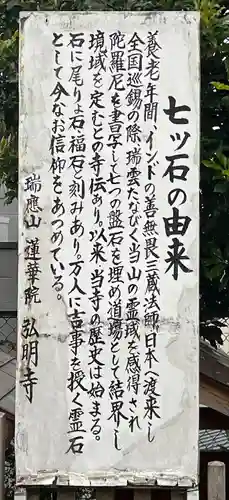 七ッ石の由来
養老年間、インドの善無畏三蔵法師、日本へ渡来し
全国巡錫の際、瑞雲たなびく当山の霊域を感得され
陀羅尼を書写し七つの盤石を埋め道場として結界し
境域を定むとの寺伝あり。以来、当寺の歴史は始まる。
石に尾りょ石福石と刻みあり。万人に吉事を授く霊石
として今なお信仰をあつめている。
瑞應山 蓮華院 弘明寺